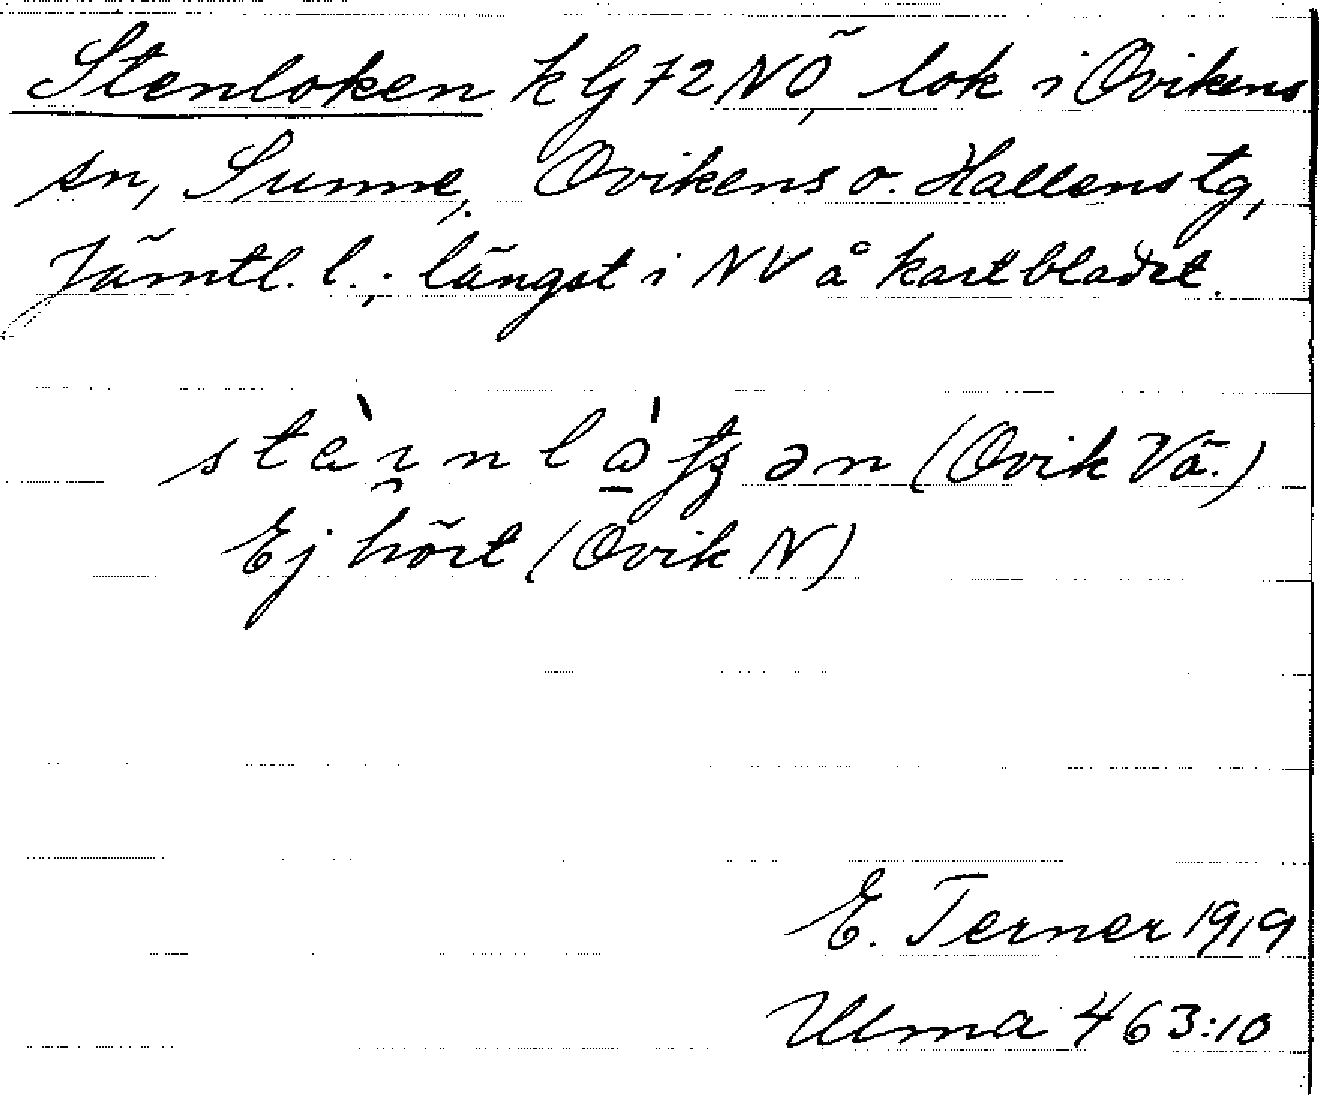 Stenloken k G 72 NÖ, lok i Ovikens
sn, Sunne, Ovikens o. Hallens tg,
Jämtl. l.; längst i NV å kartbladet.
(Ovik Vä.)
Ej hört (Ovik N)
E. Terner 1919
Ulma 463:10